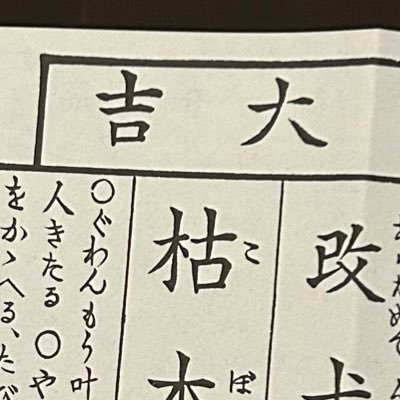 大吉
改
枯木
こ ぼ
○ぐわんもう叶
人きたる ○や
をかゝへる、たび